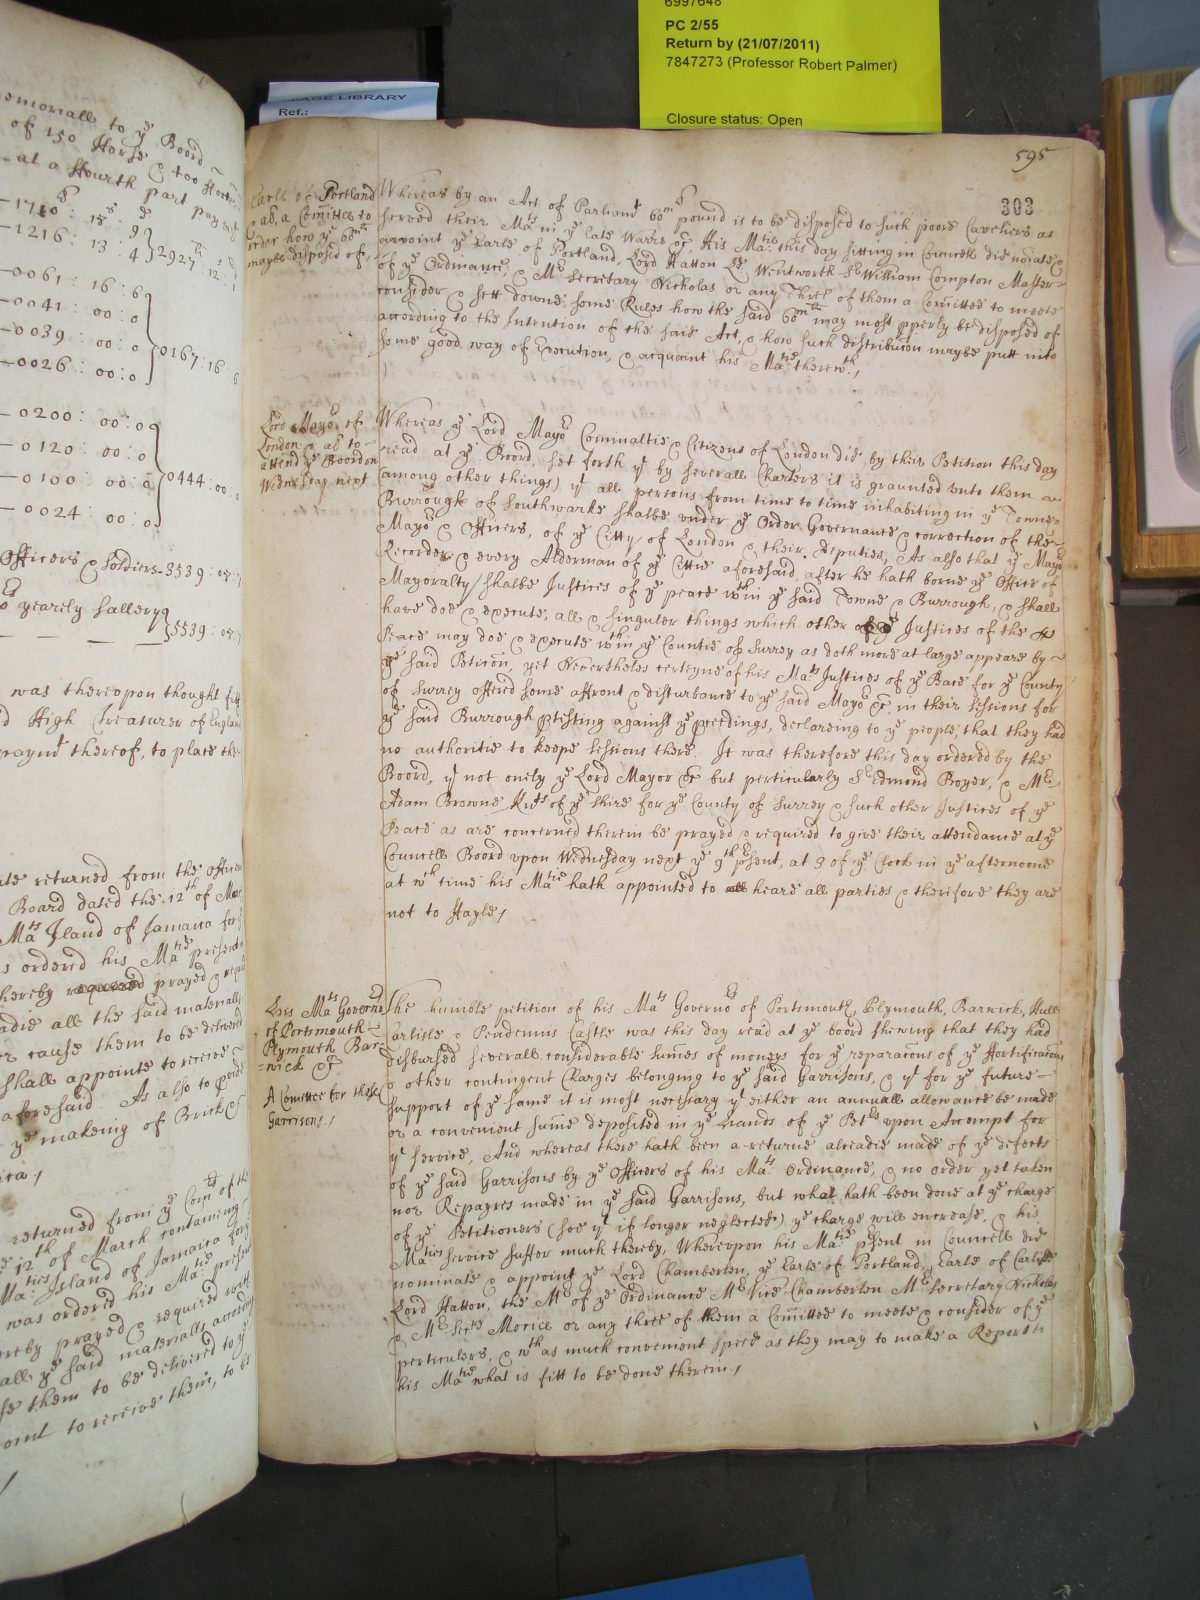 6997648
PC 2/55
Return by (21/07/2011)
7847273 (Professor Robert Palmer)
Closure status: Open
IMAGE LIBRARY
Ref.:
emorialls to yᵉ Board
of 150 Horse & 400
at a Fourth part
1216 : 13 : 4
2927 : 12 :
0061 : 16 : 6
0041 : 00 : 0
0039 : 00 : 0
0026 : 00 : 0
0167 : 16 : 6
0200 : 00 : 0
0120 : 00 : 0
0100 : 00 : 0
0024 : 00 : 0
0444 : 00 :
Officers & soldiers 3539 :
yearely sallery
5539 :
was thereupon thought fitt
High Treasurer of England
paymᵗ thereof, to place the
returned from the officers
Board dated the 12ᵗʰ of
Maᵗˢ Iland of Jamaica for
ordered his Maᵗⁱᵉ present
hereby prayed &
all the said materialls
cause them to be delivered
shall appointe to receive
aforesaid. As also to
yᵉ makeing of Brick &c
returned from yᵉ Comʳˢ of the
12ᵗʰ of March contameing
Maᵗⁱᵉˢ Island of Jamaica for
was ordered his Maᵗⁱᵉ present
hereby prayed & required
all yᵉ said materialls according
them to be delivered to yᵉ
to receive them, to
595
303
Earle of Portland
& aƚ, a Comittee to
order how yᵉ 60ᵐ ᵗʰ
maybe disposed of,
Whereas by an Act of Parliamᵗ 60ᵐ pound is to be disposed to such poore Caveliers as
served their Maᵗˢ in yᵉ late Warrs &c, His Maᵗⁱᵉ this day sitting in Councell did noiate &
appoint yᵉ Earle of Portland, Lord Hatton Lᵈ Wentworth Sʳ William Compton Master
of yᵉ Ordinance, & Mʳ Secretary Nicholas or any Three of them a Comittee to meete
consider & sett downe some Rules how the said 60ᵐ may most pperly be disposed of
according to the Intention of the said Act, & how such distribucon maybe putt into
some good way of Execution, & acquaint his Maᵗⁱᵉ therewᵗʰ,
Lord Mayoʳ of
London & aƚ to
attend yᵉ Board on
Wednesday next
Whereas yᵉ Lord Mayoʳ Cominaltie & Citizens of London did by their Petition this day
read at yᵉ Board, set forth yᵗ by severall Charters it is graunted unto them
(among other things) yᵗ all persons from time to time inhabiting in yᵉ Towne
Burrough of Southwarke shalbe under yᵉ Order Governance & correction of the
Mayoʳ & Officers, of yᵉ Citty of London & their Deputies, As also that yᵉ Mayoʳ
Recorder & every Alderman of yᵉ Cittie aforesaid, after he hath borne yᵉ Office of
Mayoralty, shalbe Justices of yᵉ peace wᵗʰin yᵉ said Towne & Burrough, & shall
have doe & execute, all & singuler things which other Justices of the
Peace may doe & execute wᵗʰin yᵉ Countie of Surrey as doth more at large appeare by
yᵉ said Peticon, yet Neverthelesse certeyne of his Maᵗˢ Justices of yᵉ Pace for yᵉ County
of Surrey offered some affront & disturbance to yᵉ said Mayoʳ &c, in their Sessions for
yᵉ said Burrough ptesting against yᵉ pceedings, declareing to yᵉ people, that they had
no authoritie to keepe sessions there. It was therefore this day ordered by the
Board, yᵗ not onely yᵉ Lord Mayor &c but perticularly Sʳ Edmond Boyer, & Mʳ
Adam Browne Kᵗˢ of yᵉ shire for yᵉ County of Surrey & such other Justices of yᵉ
Peace as are concerned therein be prayed & required to give their attendance at yᵉ
Councell Board upon Wednesday next yᵉ 9ᵗʰ psent, at 3 of yᵉ Clock in yᵉ afternoone
at wᶜʰ time his Maᵗⁱᵉ hath appointed to heare all parties & therefore they are
not to fayle,
His Maᵗˢ Governoʳˢ
of Portsmouth
Plymouth Bar-
=wick &c
A Comittee for these
Garrisons,
The humble petition of his Maᵗˢ Governoʳˢ of Portsmouth, Plymouth, Barwick, Hull
Carlisle & Pendennis Castle was this day read at yᵉ board shewing that they had
disbursed severall considerable sumes of moneys for yᵉ reparacons of yᵉ Fortificacons
& other contingent Charges belonging to yᵉ said Garrisons, & yᵗ for yᵉ future
support of yᵉ same it is most necessary yᵗ either an annuall allowance be made
or a convenient sume deposited in yᵉ hands of yᵉ Petʳˢ upon Accompt for
yᵗ service, And whereas there hath been a returne alreadie made of yᵉ defects
of yᵉ said Garrisons by yᵉ Officers of his Maᵗˢ Ordinance, & no order yet taken
nor Repayres made in yᵉ said Garrisons, but what hath been done at yᵉ charge
of yᵉ Petitioners (soe yᵗ if longer neglected) yᵉ charge will encrease, & his
Maᵗⁱᵉˢ service suffer much thereby, Whereupon his Maᵗⁱᵉ psent in Councell did
nominate & appoint yᵉ Lord Chamberlen, yᵉ Earle of Portland, Earle of Carlisle
Lord Hatton, the Mʳ of yᵉ Ordinance Mʳ Vice Chamberlen Mʳ Secretary Nicholas
& Mʳ Secʳᵗ Morice or any three of them a Comittee to meete & consider of yᵉ
perticulers, & wᵗʰ as much convenient speed as they may to make a Report to
his Maᵗⁱᵉ what is fitt to be done therein,